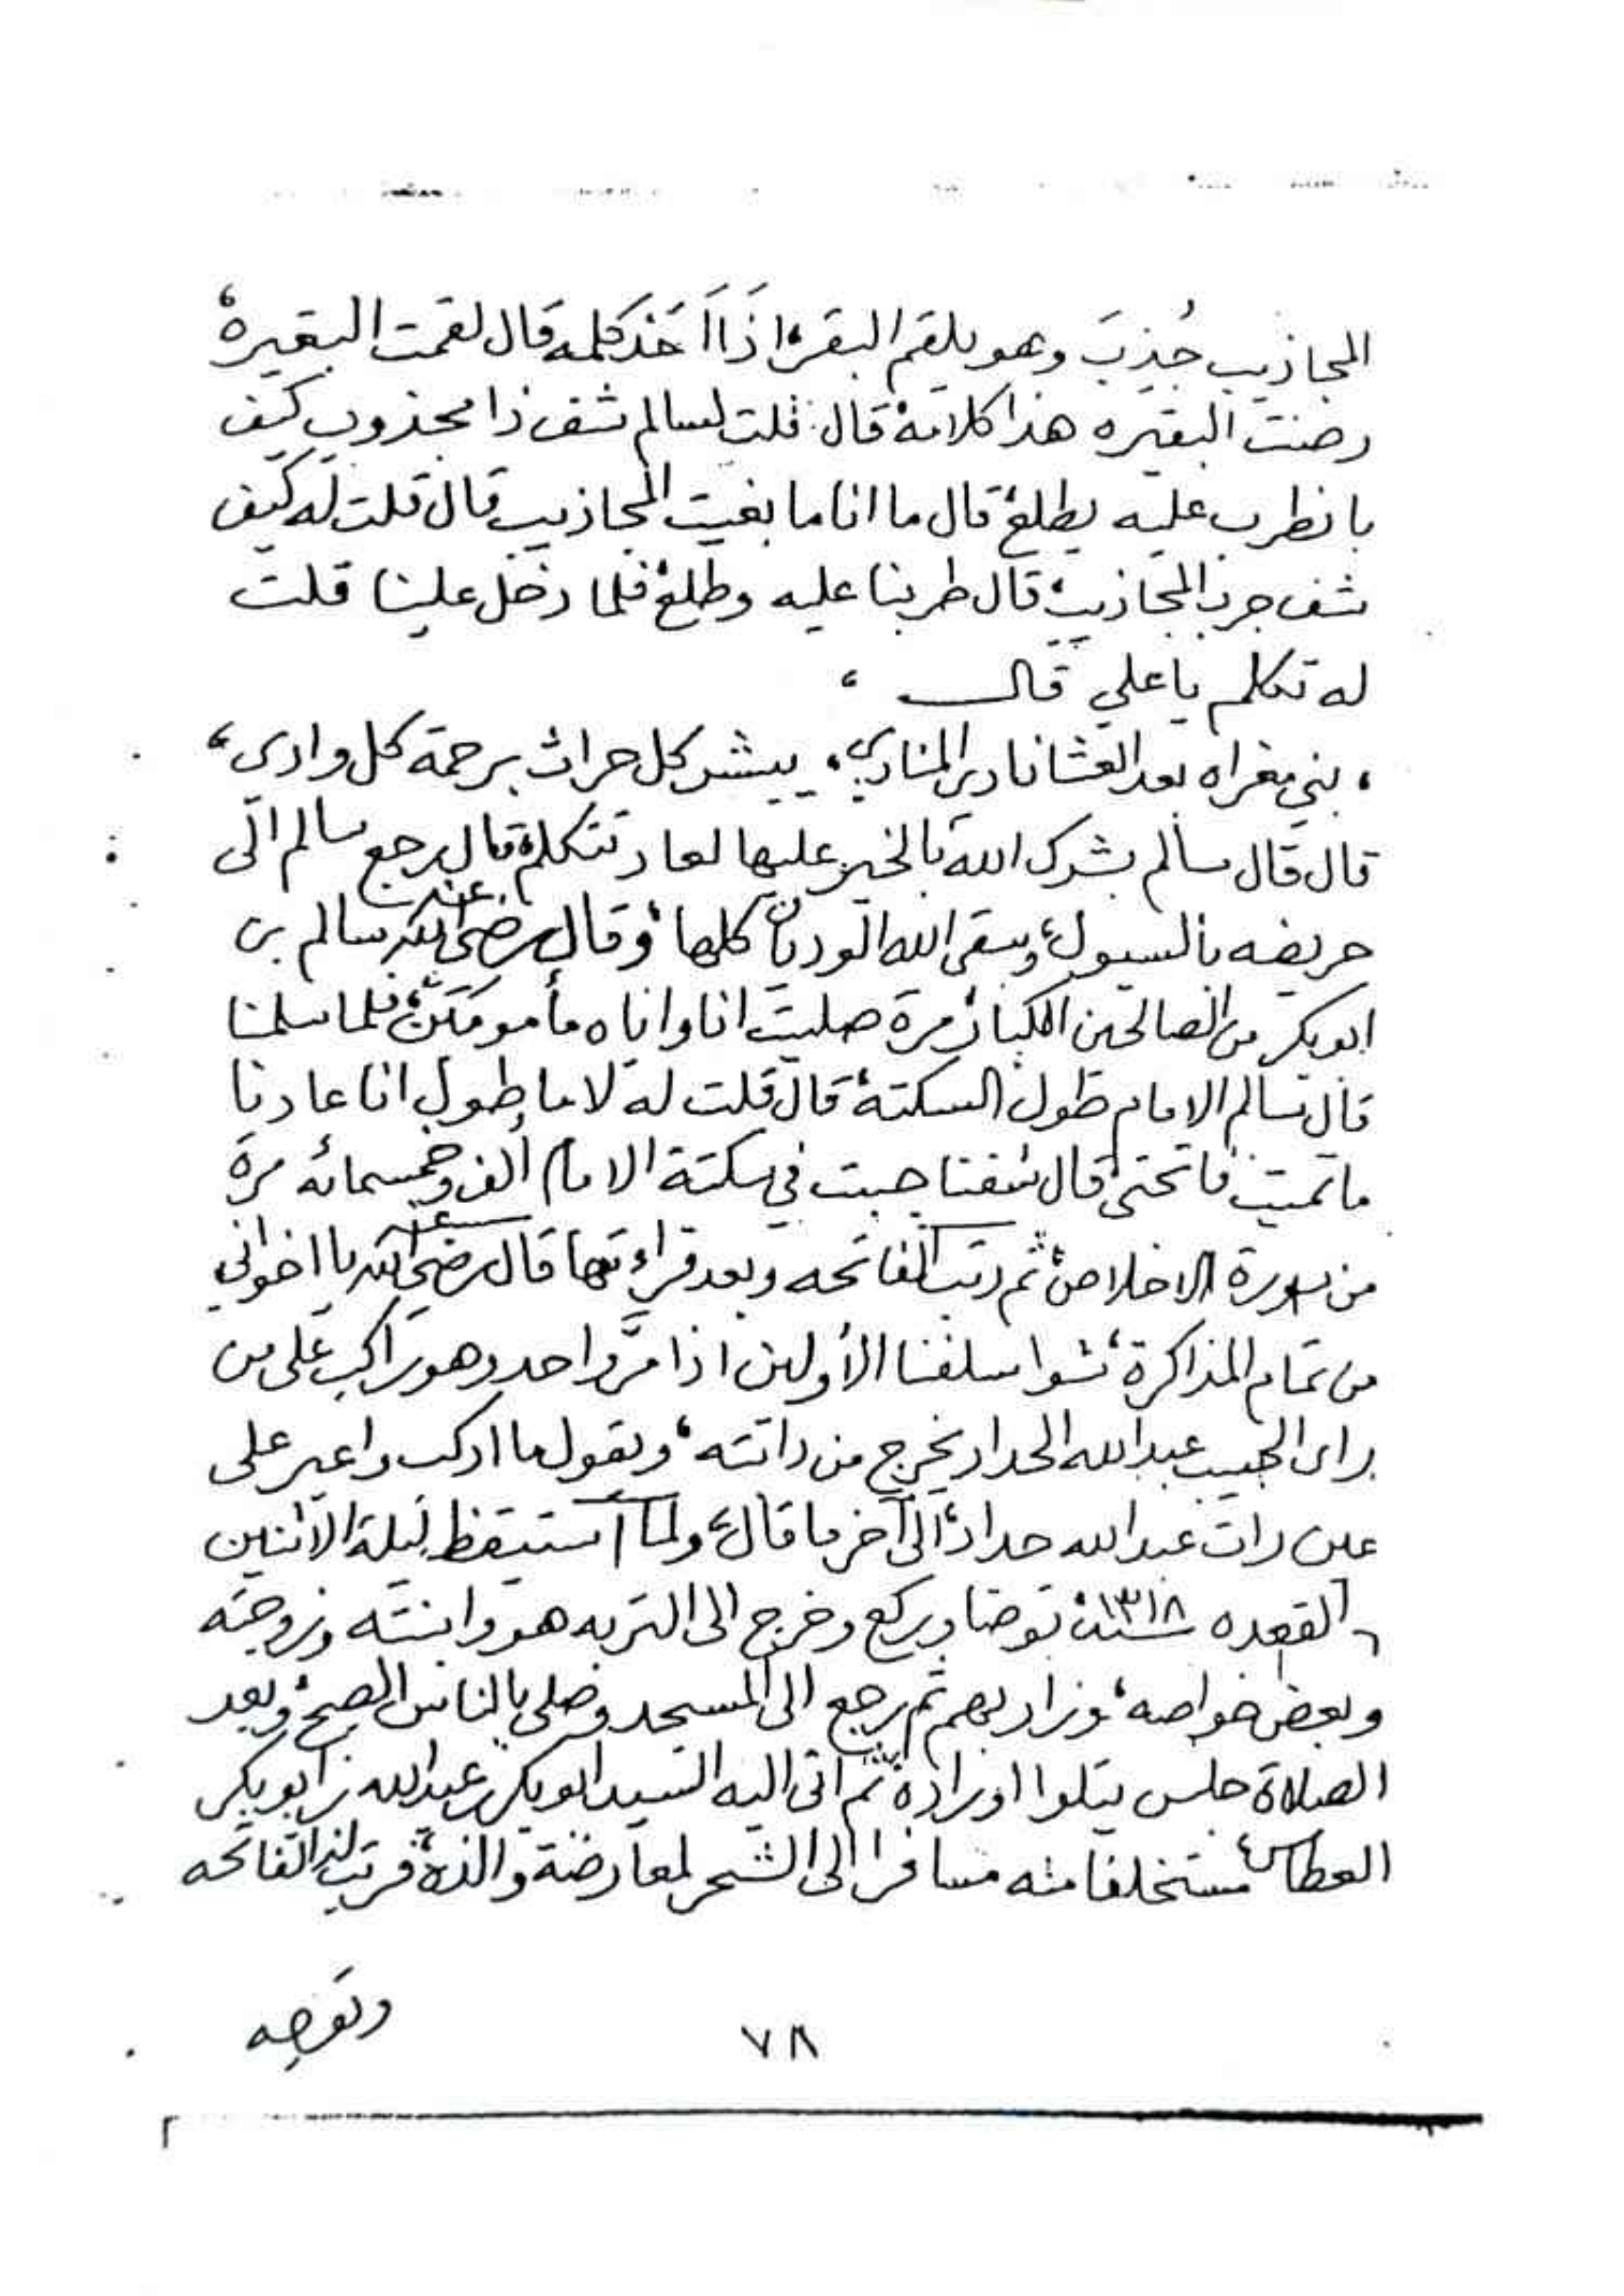 المجاذيب جُذِبَ وهو يلقم البقر، اذَا اَخَذ كلمه قال لقمت البقيره،
رضنت البقيره هذا كلامه، قال: قلت لسالم شف ذا مجذوب كيف
بانطرب عليه يطلع، قال ما انا ما بغيت المجاذيب قال قلت له كيف
شف جرب المجاذيب، قال طربنا عليه وطلع، فلما دخل علينا قلت
له تكلم يا علي قال ،
، بني مغراه بعد العشا نادى المنادي، يبشر كل حراث برحمة كل وادي،
قال قال سالم بشرك الله بالخير عليها لعاد تتكلم، قال رجع سالم الى
حريضه بالسيول، وسقى الله الوديان كلها، وقال رضي الله عنه سالم بن
ابوبكر من الصالحين الكبار، مرة صليت انا واياه مأمومَيَن، فلما سلمنا
قال سالم الامام طول السكتة، قال قلت له لا ما طول انا عادنا
ما تميت فاتحتي، قال شفنا جبت في سكتة الامام ألف وخمسمائه مرة
من سورة الاخلاص، ثم رتب الفاتحه وبعد قراءتها قال رضي الله عنه يا اخواني
من تمام المذاكرة، شوا سلفنا الأولين اذا مرَّ واحد وهو راكب على من
رأى الحبيب عبدالله الحداد يخرج من دابته، ويقول ما اركب واعبر على
عين رأت عبدالله حداد، الى آخر ما قال، ولما استيقظ ليلة الاثنين
القعده سنة ١٣١٨ توضا وركع وخرج الى التربه هو وابنته وزوجته
وبعض خواصه، وزار بهم ثم رجع الى المسجد وصلى بالناس الصبح، وبعد
الصلاة جلس يتلوا اوراده، ثم اتى اليه السيد ابوبكر بن عبدالله بن ابوبكر
العطاس، مستخلفا منه مسافرا الى الشحر لمعارضة والده، فرتب له الفاتحه
٧٨